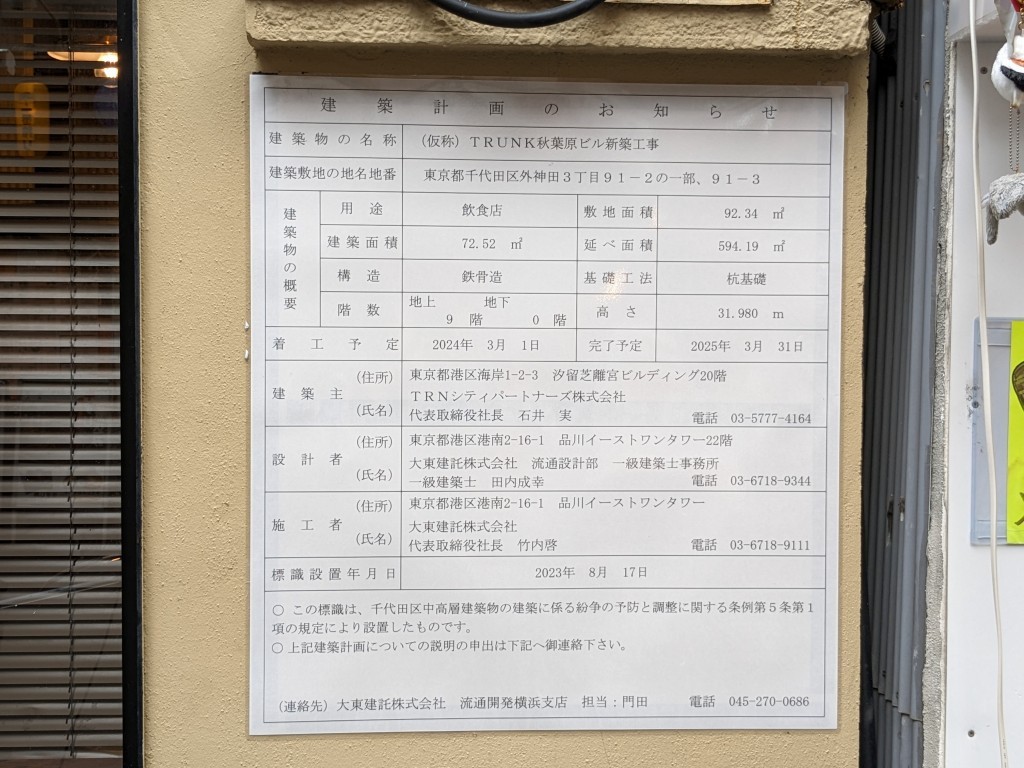 建築計画のお知らせ
建築物の名称 （仮称）ＴＲＵＮＫ秋葉原ビル新築工事
建築敷地の地名地番 東京都千代田区外神田３丁目９１－２の一部、９１－３
建築物の概要
用途 飲食店 敷地面積 92.34 ㎡
建築面積 72.52 ㎡ 延べ面積 594.19 ㎡
構造 鉄骨造 基礎工法 杭基礎
階数 地上 9 階 地下 0 階 高さ 31.980 m
着工予定 2024年 3月 1日 完了予定 2025年 3月 31日
建築主 （住所） 東京都港区海岸1-2-3 汐留芝離宮ビルディング20階
（氏名） ＴＲＮシティパートナーズ株式会社
代表取締役社長 石井 実 電話 03-5777-4164
設計者 （住所） 東京都港区港南2-16-1 品川イーストワンタワー22階
（氏名） 大東建託株式会社 流通設計部 一級建築士事務所
一級建築士 田内成幸 電話 03-6718-9344
施工者 （住所） 東京都港区港南2-16-1 品川イーストワンタワー
（氏名） 大東建託株式会社
代表取締役社長 竹内啓 電話 03-6718-9111
標識設置年月日 2023年 8月 17日
○ この標識は、千代田区中高層建築物の建築に係る紛争の予防と調整に関する条例第５条第１
項の規定により設置したものです。
○ 上記建築計画についての説明の申出は下記へ御連絡下さい。
（連絡先）大東建託株式会社 流通開発横浜支店 担当：門田 電話 045-270-0686